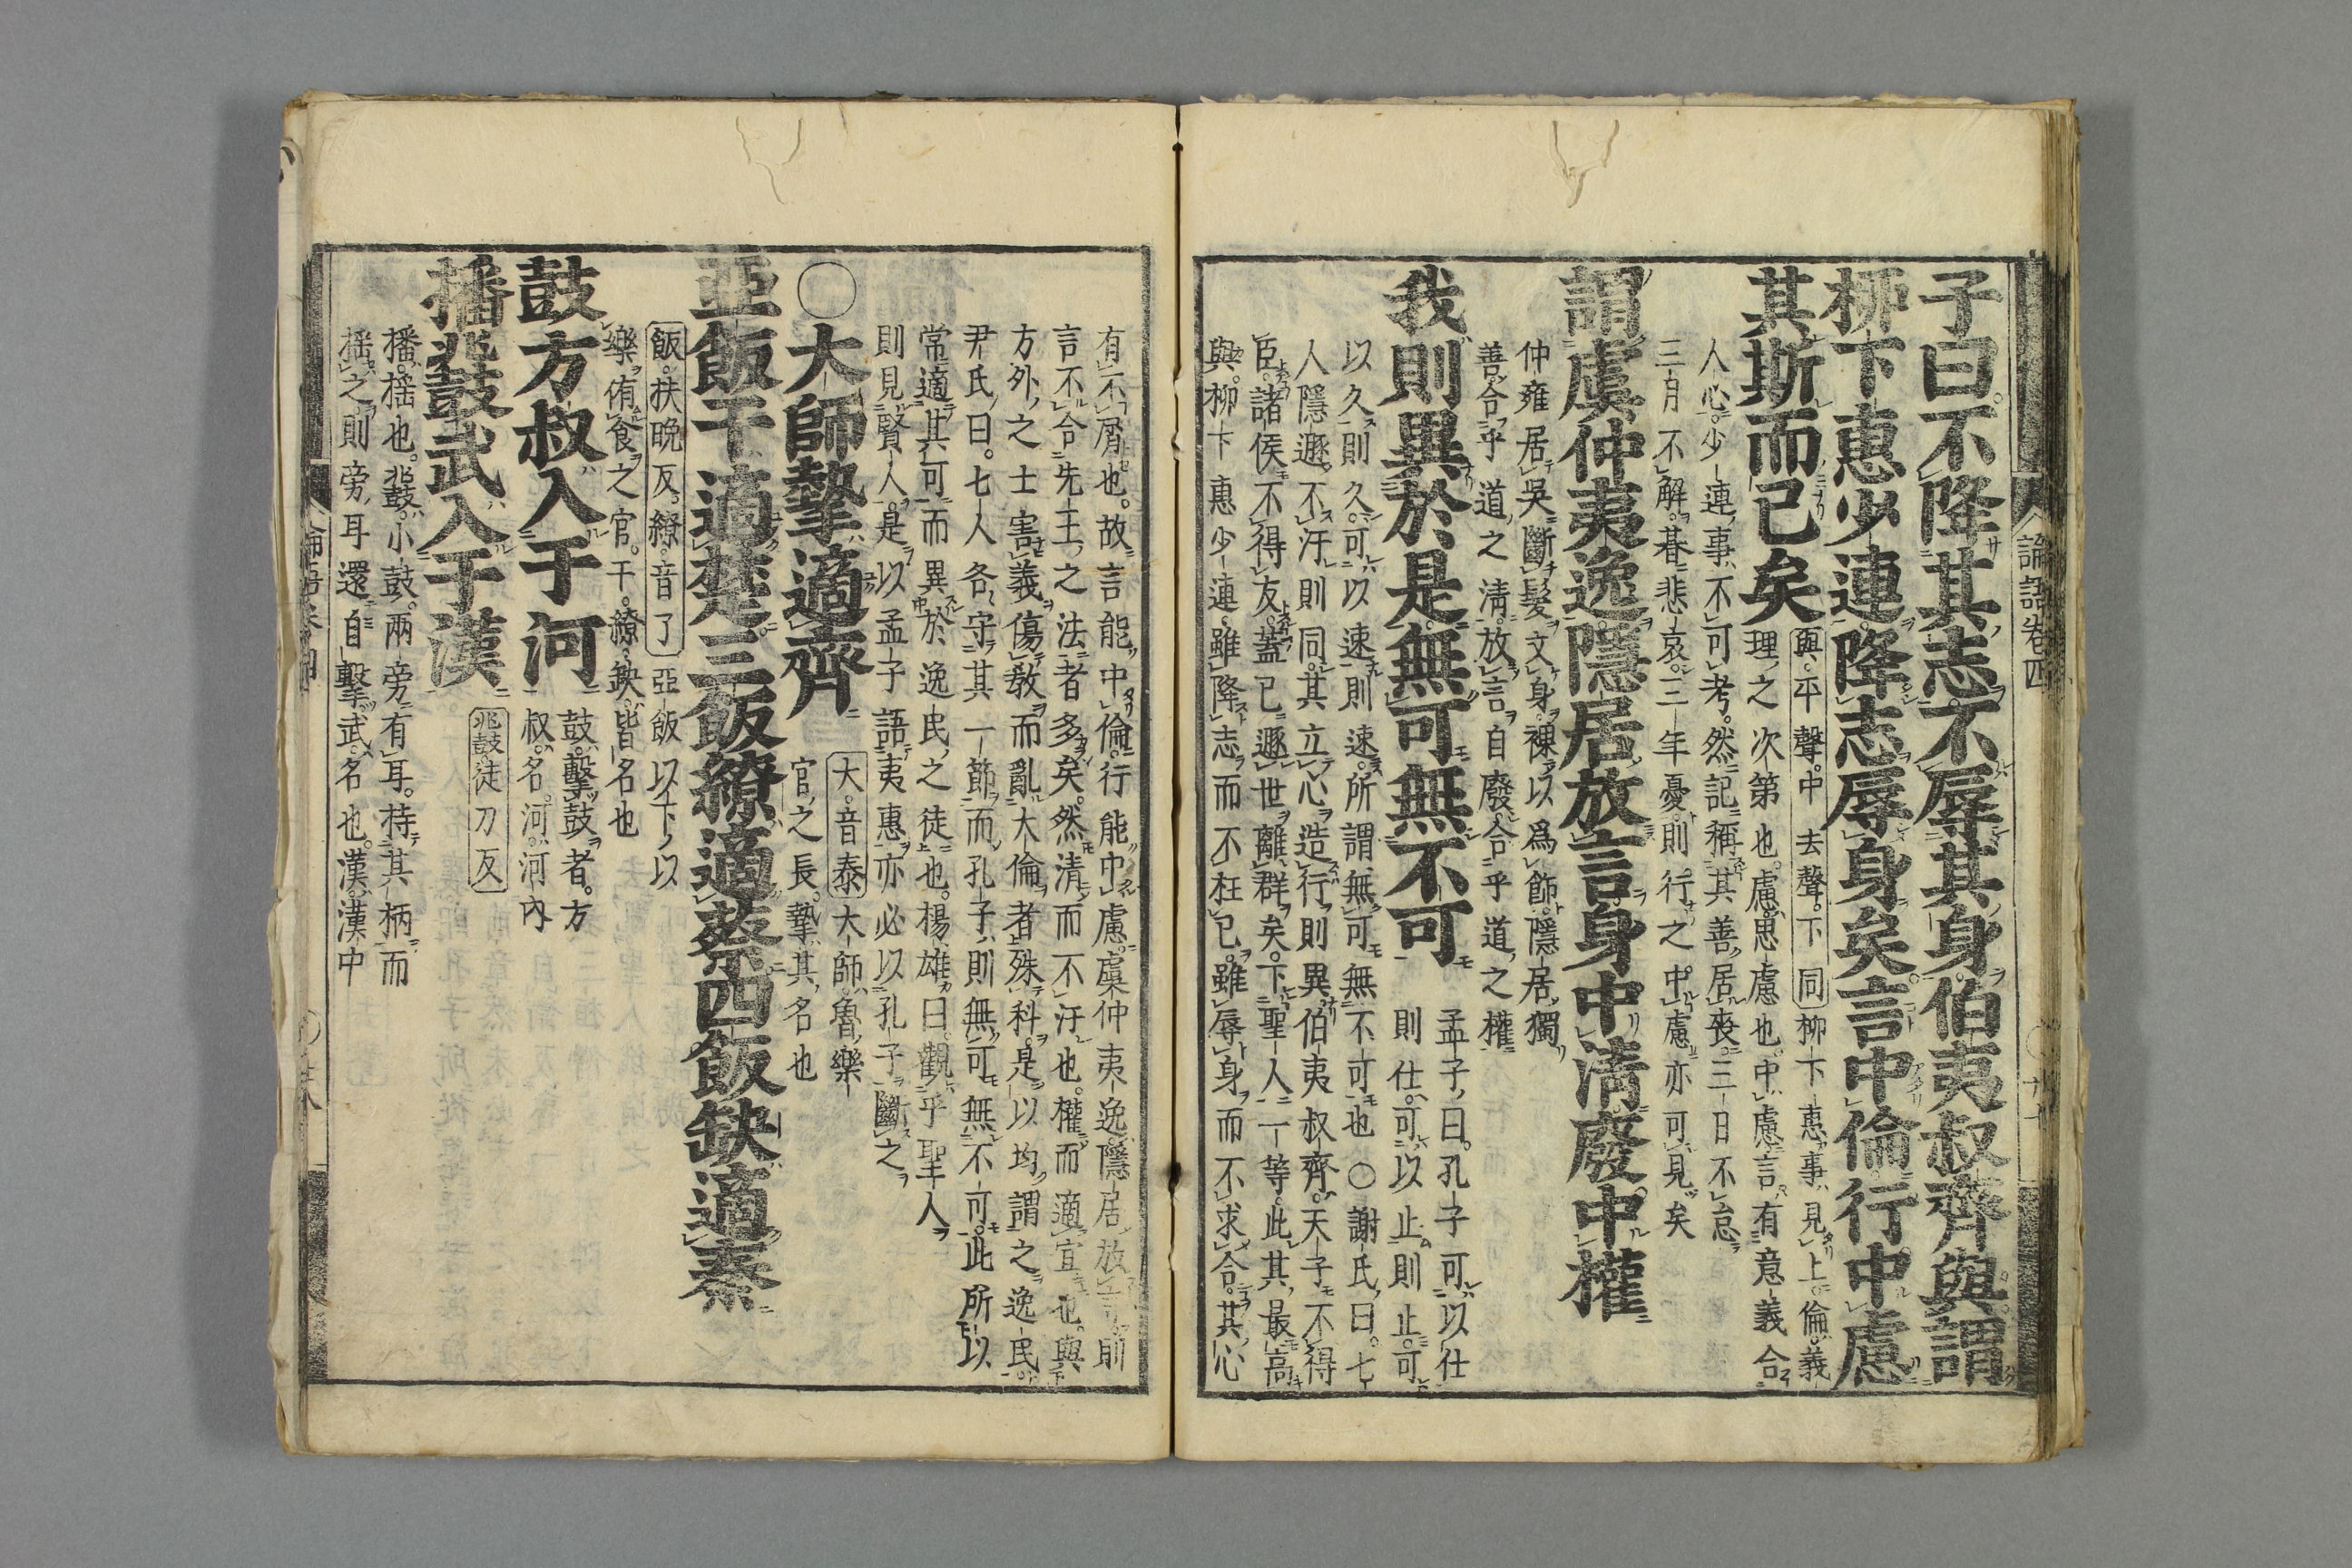 子曰不降其志不辱其身伯夷叔齊與謂
柳下惠少連降志辱身矣言中倫行中慮
其斯而已矣
與平聲中去聲下同柳下惠事見上倫義
理之次第也慮思慮也中慮言有意義合
人心少連事不可考然記稱其善居喪三日不怠
三月不解朞悲哀三年憂則行之中慮亦可見矣
謂虞仲夷逸隱居放言身中清廢中權
仲雍居吳斷髮文身裸以爲飾隱居獨
善合乎道之清放言自廢合乎道之權
我則異於是無可無不可
孟子曰孔子可以仕
則仕可以止則止可
以久則久可以速則速所謂無可無不可也○謝氏曰七
人隱遯不汙則同其立心造行則異伯夷叔齊天子不得
臣諸侯不得友蓋已遯世離群矣下聖人一等此其最高
與柳下惠少連雖降志而不枉己雖辱身而不求合其心
論語卷四
有不屑也故言能中倫行能中慮虞仲夷逸隱居放言則
言不合先王之法者多矣然清而不汙也權而適宜也與
方外之士害義傷敎而亂大倫者殊科是以均謂之逸民
尹氏曰七人各守其一節而孔子則無可無不可此所以
常適其可而異於逸民之徒也揚雄曰觀乎聖人
則見賢人是以孟子語夷惠亦必以孔子斷之
○大師摯適齊
大音泰大師魯樂
官之長摯其名也
亞飯干適楚三飯繚適蔡四飯缺適秦
飯扶晚反繚音了亞飯以下以
樂侑食之官干繚缺皆名也
鼓方叔入于河
鼓擊鼓者方
叔名河河內
播鼗武入于漢
鼗徒刀反
播搖也鼗小鼓兩旁有耳持其柄而
搖之則旁耳還自擊武名也漢漢中